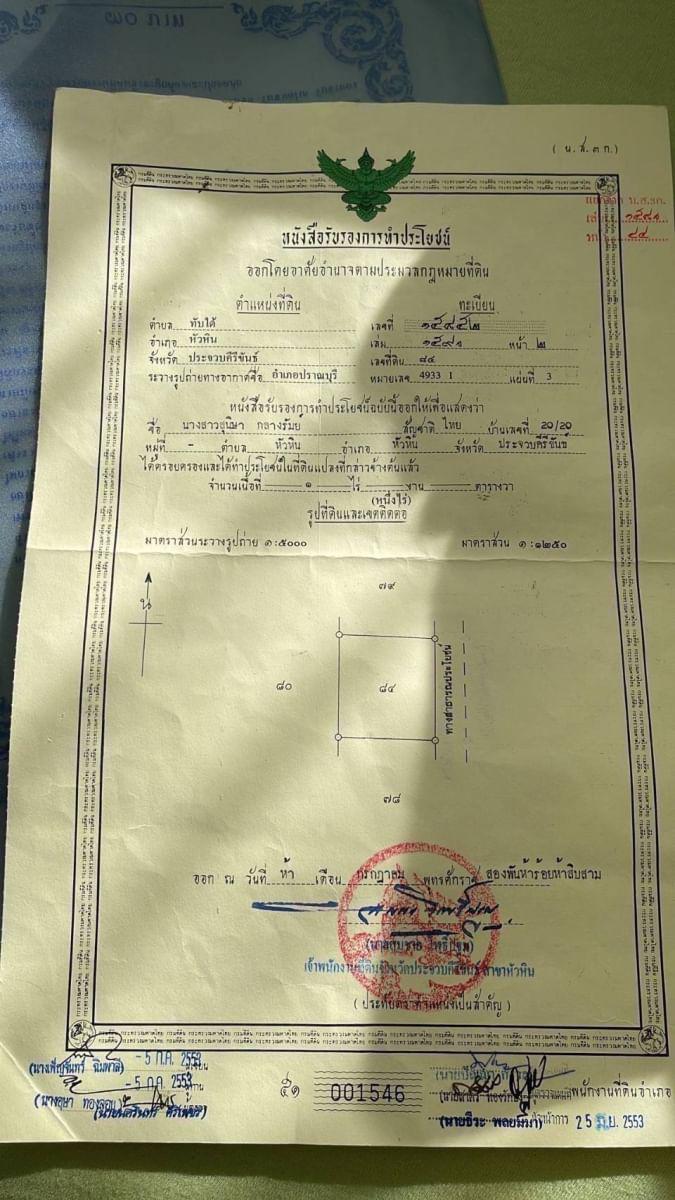 ( น.ส.๓ ก.)
หนังสือรับรองการทำประโยชน์
ออกโดยอาศัยอำนาจตามประมวลกฎหมายที่ดิน
ตำแหน่งที่ดิน ทะเบียน
ตำบล ทับใต้ เลขที่ ๑๕๙๕๒
อำเภอ หัวหิน เล่ม ๑๕๙๑ หน้า ๒
จังหวัด ประจวบคีรีขันธ์ เลขที่ดิน ๘๔
ระวางรูปถ่ายทางอากาศชื่อ อำเภอปราณบุรี หมายเลข 4933 I แผ่นที่ 3
หนังสือรับรองการทำประโยชน์ฉบับนี้ออกให้เพื่อแสดงว่า
ชื่อ นางสาวสุนิษา กลางรัมย์ สัญชาติ ไทย บ้านเลขที่ 20/20
หมู่ที่ - ตำบล หัวหิน อำเภอ หัวหิน จังหวัด ประจวบคีรีขันธ์
ได้ครอบครองและได้ทำประโยชน์ในที่ดินแปลงที่กล่าวข้างต้นแล้ว
จำนวนเนื้อที่ ๑ ไร่ งาน ตารางวา
(หนึ่งไร่)
รูปที่ดินและเขตติดต่อ
มาตราส่วนระวางรูปถ่าย ๑:๕๐๐๐ มาตราส่วน ๑:๑๒๕๐
น
๗๙
๘๐
๘๔
ทางสาธารณประโยชน์
๗๘
ออก ณ วันที่ ห้า เดือน กรกฎาคม พุทธศักราช สองพันห้าร้อยห้าสิบสาม
เจ้าพนักงานที่ดินจังหวัดประจวบคีรีขันธ์ สาขาหัวหิน
( ประทับตราตำแหน่งเป็นสำคัญ )
- 5 ก.ค. 2553
- 5 ก.ค. 2553
๕๑ 001546
พนักงานที่ดินอำเภอ
(นายธีระ พลอยมีมา) 25 มิ.ย. 2553